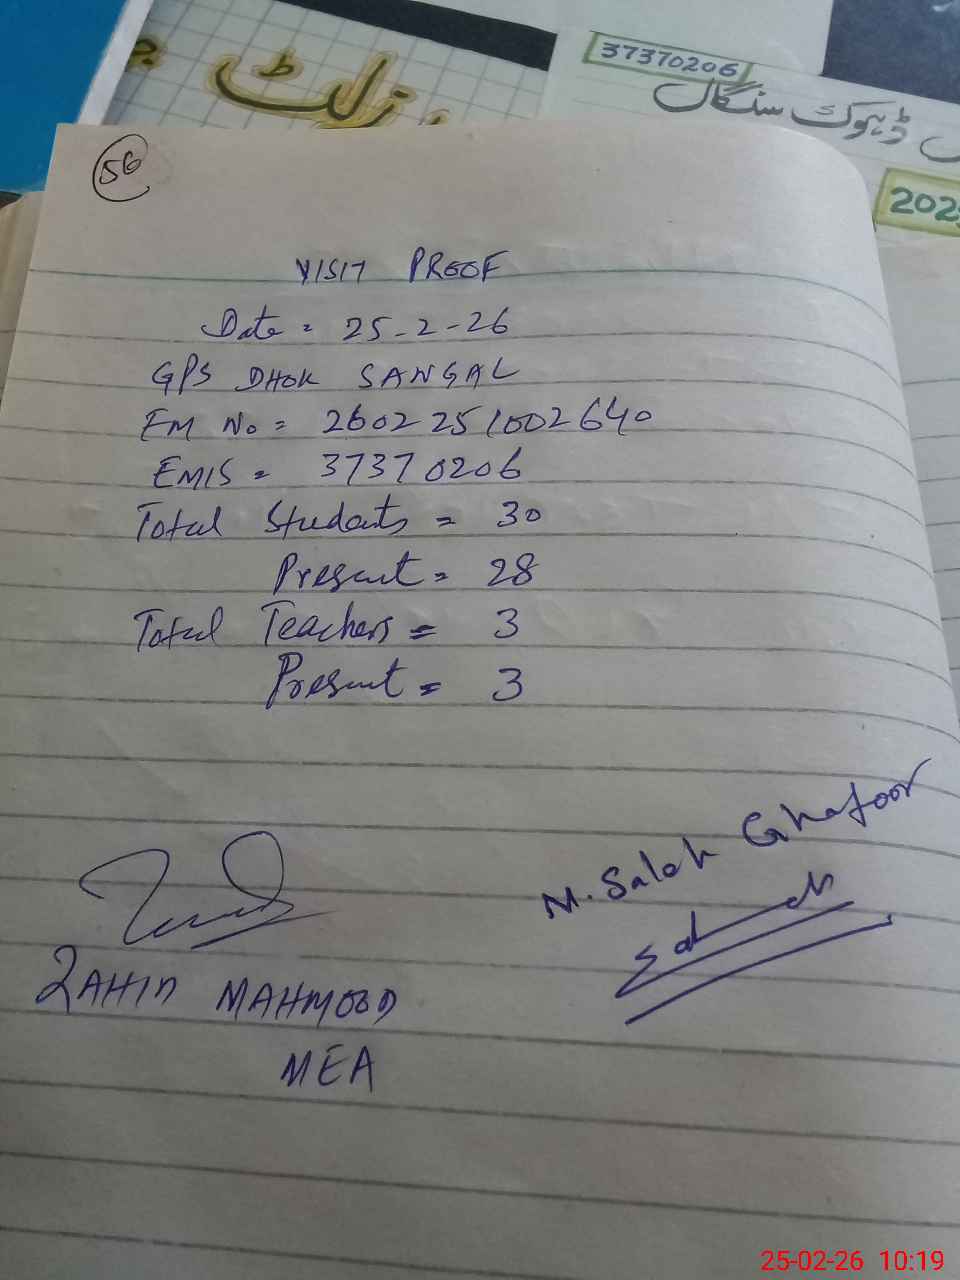 رزلٹ
37370206
ڈہوک سنگال
202
56
VISIT PROOF
Date = 25-2-26
GPS DHOK SANGAL
FM No = 2602251002640
EMIS = 37370206
Total Students = 30
Present = 28
Total Teachers = 3
Present = 3
M. Saleh Ghafoor
ZAHID MAHMOOD
MEA
25-02-26 10:19